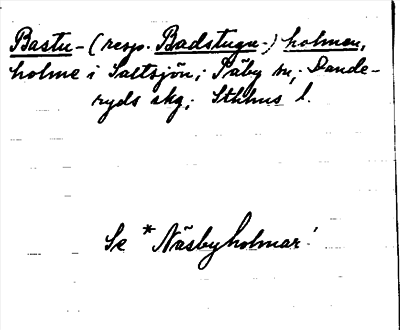 Bastu- (resp. Badstugu-) holmen,
holme i Saltsjön; Täby sn; Dande-
ryds skg; Sthlms l.
Se *Näsbyholmar!